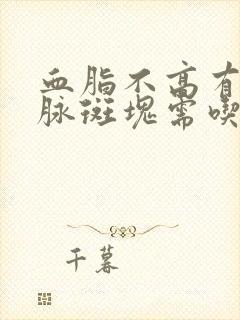 血脂不高有
脉斑块需喫
千暮